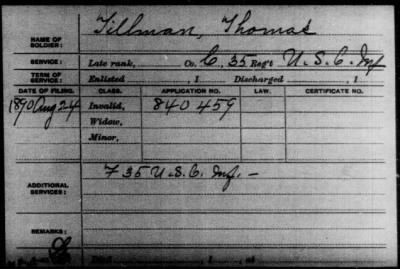 NAME OF SOLDIER: Tillman, Thomas
SERVICE: Late rank, Co. C, 35 Reg't U.S.C. Inf
TERM OF SERVICE: Enlisted , 1 Discharged , 1
DATE OF FILING. CLASS. APPLICATION NO. LAW. CERTIFICATE NO.
1890 Aug 24 Invalid, 840459
Widow,
Minor,
ADDITIONAL SERVICES: F 35 U.S.C. Inf. -
REMARKS:
Died , 1 , at